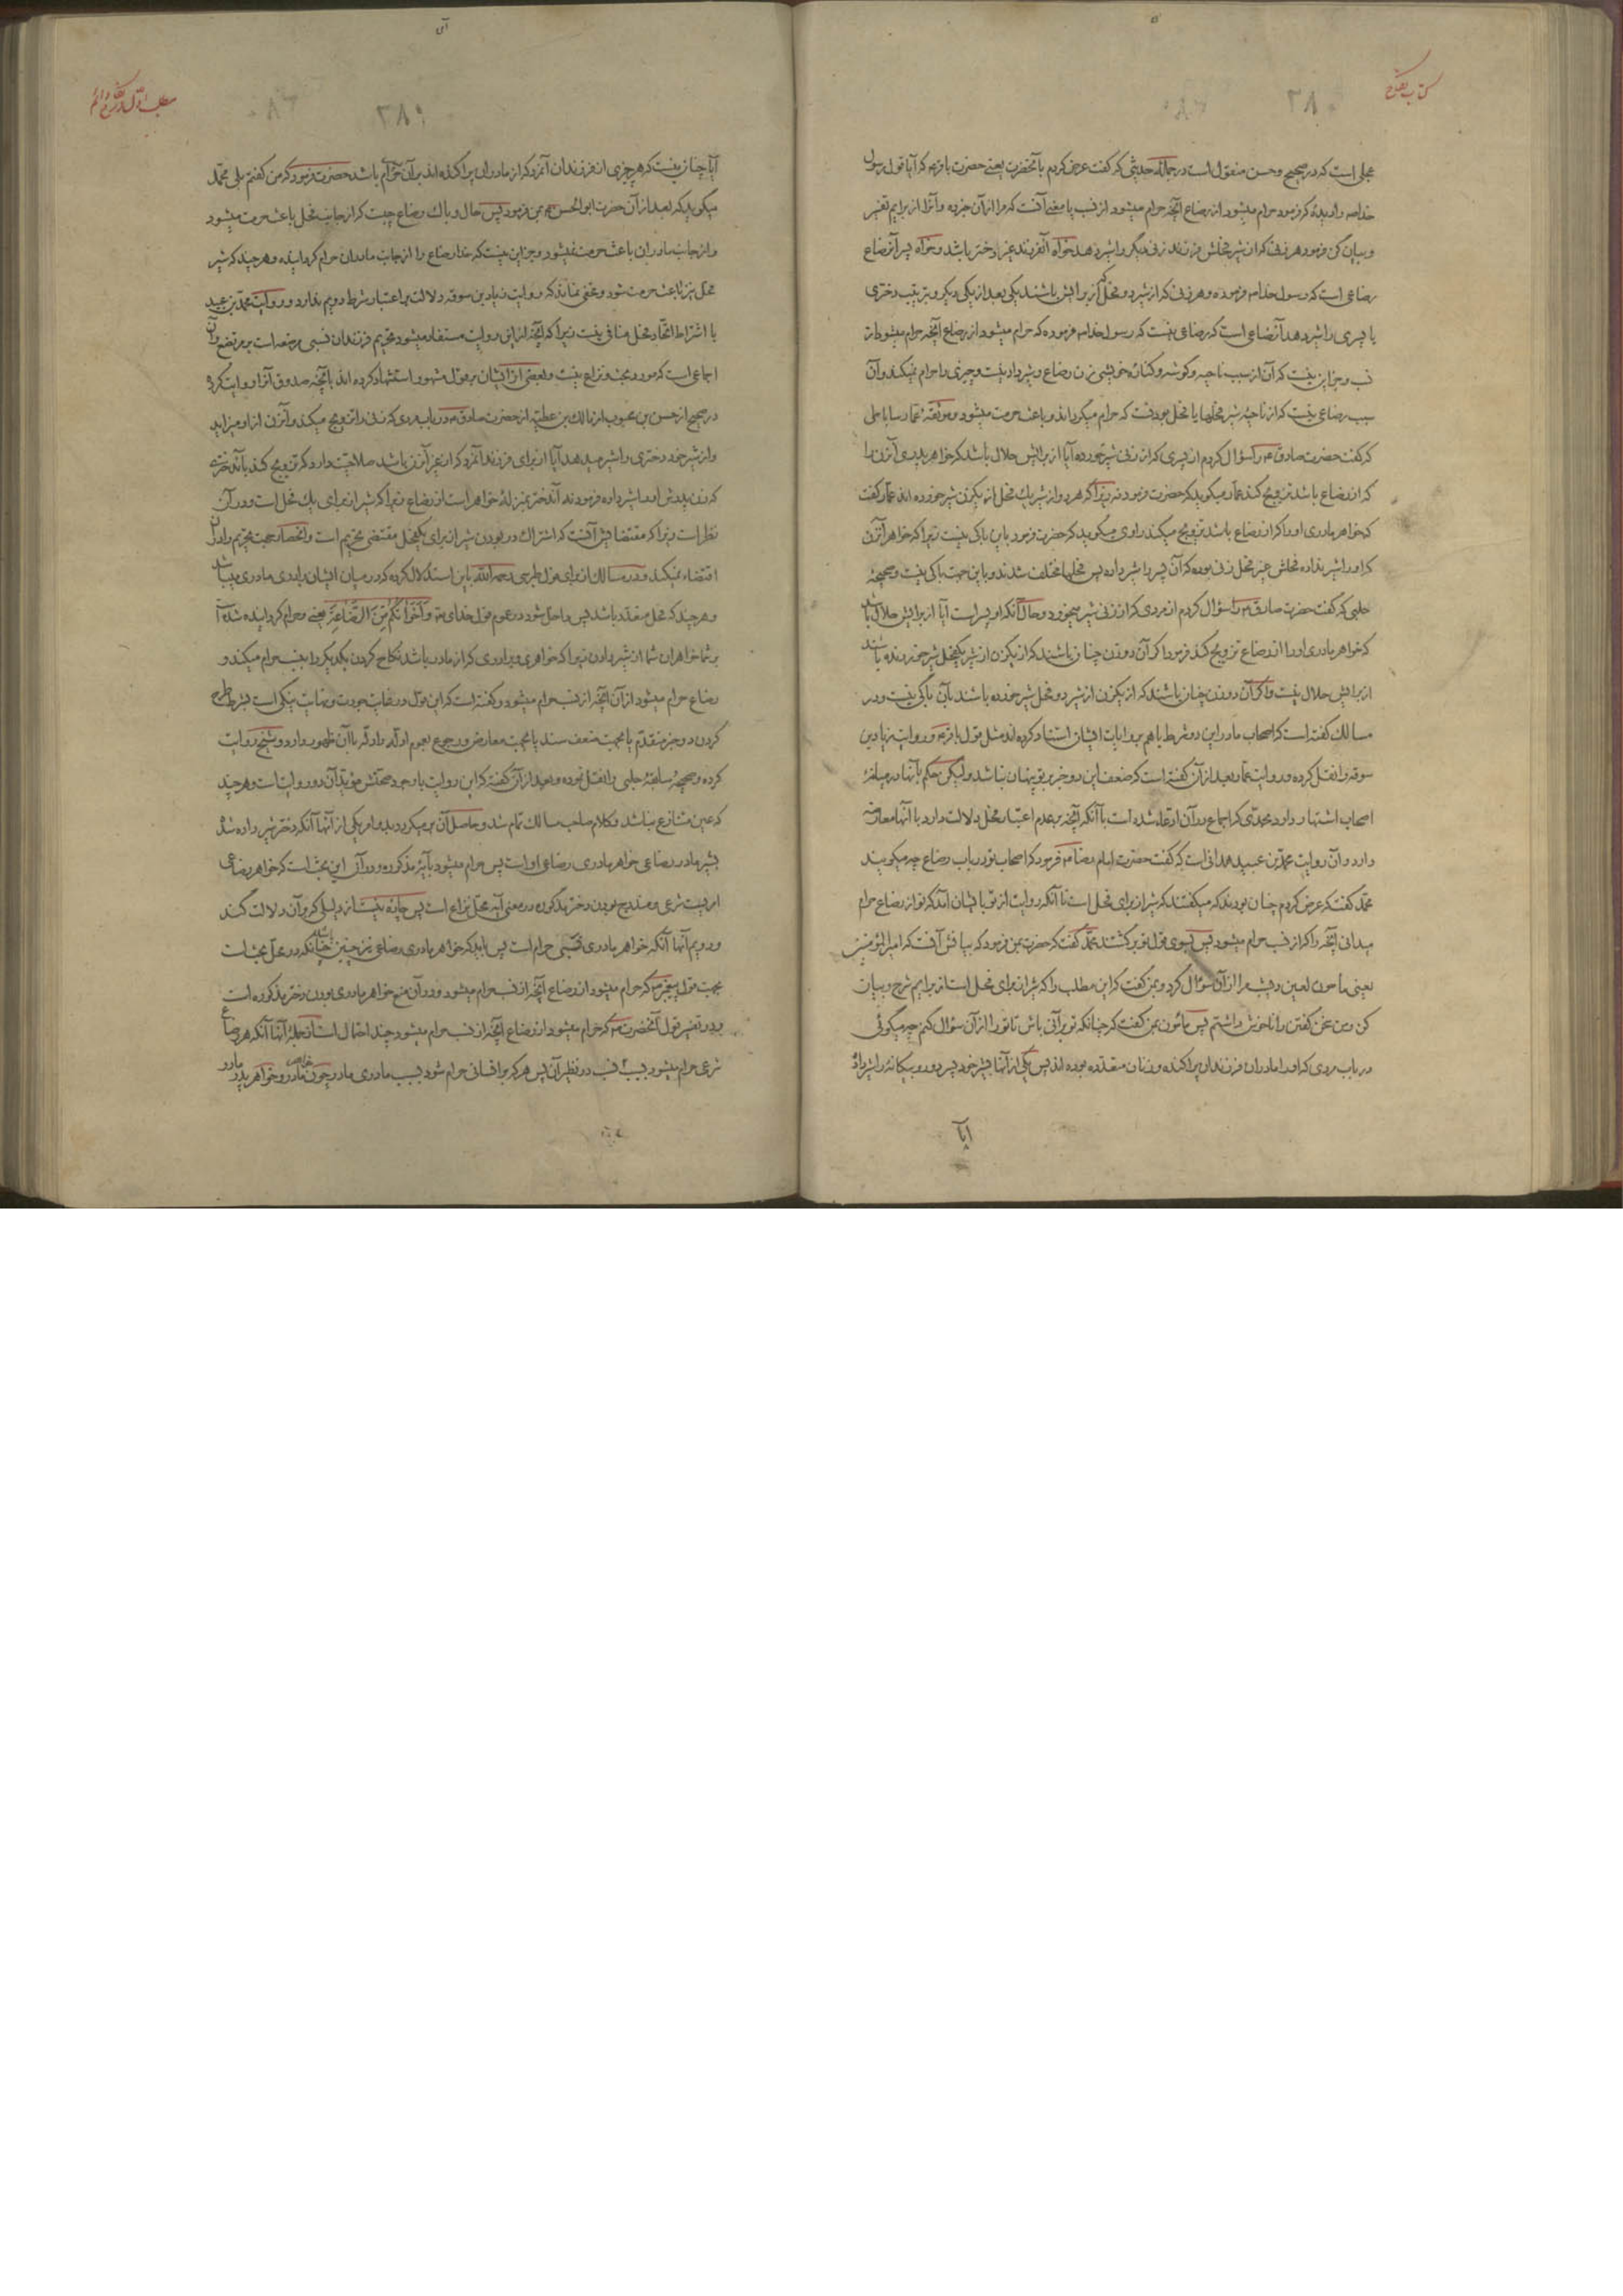 کتاب نکاح
۳۸۰
عجلی است که در صحیح و حسن منقول است در جمله حدیثی که گفت عرض کردم بآنحضرت یعنی حضرت باقر که آیا قول رسول
خدا را دیدهٔ که فرمود حرام میشود از رضاع آنچه حرام میشود از نسب پا معنی آنست که مرا از آن خبر ده و آنرا از برایم تفسیر
و بیان کن فرمود هر زنی که از شیر فحلش فرزند زنی دیگر را شیر دهد خواه آنفرزند غیر دختر باشد و خواه پسر آنرضاع
رضاعی است که رسول خدا فرموده و هر زنی که از شیر دو فحل که از برایش باشند یکی بعد از یکی دیگر و بترتیب دختری
یا پسری را شیر دهد آنرضاعی است که رضاعی نیست که رسول خدا فرموده که حرام میشود از رضاع آنچه حرام میشود از
نسب و جز این نیست که آن از سبب ناحیه و گوشه و کناره خویشی زن رضاع و شیر داد نیست و چیزی را حرام نمیکند و آن
سبب رضاعی نیست که از ناحیهٔ شیر فحلها یا فحل بودنست که حرام میگرداند و باعث حرمت میشود و موثقهٔ عمار ساباطی
که گفت حضرت صادق را سؤال کردم از پسری که از زنی شیر خورده آیا از برایش حلال باشد که خواهر پدری آنزن را
که از رضاع باشد تزویج کند عمار میگوید که حضرت فرمود نه زیرا که هر دو از شیر یک فحل از یکزن شیر خورده اند عمار گفت
که خواهر مادری او را که از رضاع باشد تزویج میکند راوی میگوید که حضرت فرمود باین باکی نیست زیرا که خواهر آنزن
که او را شیر نداده فحلش غیر فحل زنی بوده که آن پسر را شیر داده پس فحلها مختلف شدند و باین جهت باکی نیست و صحیحهٔ
حلبی که گفت حضرت صادق را سؤال کردم از مردی که از زنی شیر میخورد و حال آنکه او پسر است آیا از برایش حلال باشد
که خواهر مادری او را از رضاع تزویج کند فرمود اگر آن دو زن چنان باشند که از یکزن از شیر یکفحل شیر خورنده باشند
از برایش حلال نیست و اگر آن دو زن چنان باشند که از یکزن از شیر دو فحل شیر خورده باشند بآن باکی نیست و در
مسالک گفته است که اصحاب ما در این دو شرط با هم بروایات ایشان استناد کرده اند مثل قول باقر و روایت زیاد بن
سوقه را نقل کرده و روایت عمار بعد از آن گفته است که ضعف این دو خبر بر تو پنهان نباشد ولیکن حکم بآنها در میانهٔ
اصحاب اشتهار دارد بحدّی که اجماع در آن ادعا شده است با آنکه آنچه بر عدم اعتبار فحل دلالت دارد با آنها معارضه
دارد و آن روایت محمد بن عبید همدانی است که گفت حضرت امام رضا فرمود که اصحاب تو در باب رضاع چه میگویند
محمد گفت که عرض کردم چنان بودند که میگفتند که شیر از برای فحل است تا آنکه روایت از تو بایشان آمد که تو از رضاع حرام
میدانی آنچه را که از نسب حرام میشود پس بسوی قول تو برگشتند محمد گفت که حضرت بمن فرمود که بیانش آنست که امیرالمؤمنین
یعنی مأمون لعین دیشب مرا از آن سؤال کرد و بمن گفت که این مطلب را که شیر از برای فحل است از برایم شرح و بیان
کن و من سخن گفتن را ناخوش داشتم پس مأمون بمن گفت که چنانکه تو برآنی باش تا تو را از آن سؤال کنم چه میگوئی
در باب مردی که او را مادران فرزندان پراکنده و زنان متعدده بوده اند پس یکی از آنها بشیر خود پسر و بیگانهٔ را شیر داد
ایا
مطلب اول در نکاح دائم
۳۸۱
آیا چنان نیست که هر چیزی از فرزندان آنمرد که از مادران پراکنده اند بر آن حرام باشد حضرت فرمود که من گفتم بلی محمد
میگوید که بعد از آن حضرت ابوالحسن بمن فرمود پس حال و باک رضاع چیست که از جانب فحل باعث حرمت میشود
و از جانب مادران باعث حرمت نمیشود و جز این نیست که خدا رضاع را از جانب مادران حرام گردانیده و هر چند که شیر
فحل نیز باعث حرمت شود و مخفی نماند که روایت زیاد بن سوقه دلالت بر اعتبار شرط دویم ندارد و روایت محمد بن عبید
با اشتراط اتحاد فحل منافی نیست زیرا که آنچه از این روایت مستفاد میشود تحریم فرزندان نسبی مرضعه است بر مرتضع و آن
اجماعی است که مورد بحث و نزاع نیست و بعضی از ایشان بر قول مشهور استشهاد کرده اند بآنچه صدوق آنرا روایت کرده
در صحیح از حسن بن محبوب از مالک بن عطیه از حضرت صادق در باب مردی که زنی را تزویج میکند و آنزن از او میزاید
و از شیر خود دختری را شیر میدهد آیا از برای فرزند آنمرد که از غیر آنزن باشد صلاحیت دارد که تزویج کند بآندختری
که زن پدرش او را شیر داده فرمود نه آندختر بمنزلهٔ خواهر است از رضاع زیرا که شیر از برای یک فحل است و در آن
نظر است زیرا که مقتضایش آنست که اشتراک در بودن شیر از برای یکفحل مقتضی تحریم است و انحصار جهت تحریم را در آن
اقتضاء نمیکند و در مسالک از برای قول طبرسی رحمه الله باین استدلال کرده که در میان ایشان برادری مادری میباشد
و هر چند که فحل متعدد باشد پس داخل شود در عموم قول خدای وَأَخَوَاتُكُم مِّنَ الرَّضَاعَةِ یعنی و حرام گردانیده شده
بر شما خواهران شما از شیر دادن زیرا که خواهری و برادری که از مادر باشد نکاح کردن یکدیگر را بنسب حرام میکند و
رضاع حرام میشود از آن آنچه از نسب حرام میشود و گفته است که این قول در نهایت جودت و نهایت نیکی است بشرط طرح
کردن دو خبر متقدم یا بجهت ضعف سند یا بجهت معارض و رجوع بعموم ادله و ادله با آن ظهور دارد و شیخ روایت
کرده و صحیحهٔ سابقهٔ حلبی را نقل نموده و بعد از آن گفته که این روایت با وجود صحتش مؤید آن دو روایت است و هر چند
که عین متنازع نباشد و کلام صاحب مسالک تمام شد و حاصل آن بر میگردد بدو امر یکی از آنها آنکه دختر شیر داده شدهٔ
بشیر مادر رضاعی خواهر مادری رضاعی او است پس حرام میشود بآیهٔ مذکوره و در آن این بحث است که خواهر رضاعی
امریست شرعی و مندرج بودن دختر مذکوره در معنی آیه محل نزاع است پس چاره نیست از دلیلی که بر آن دلالت کند
و دویم آنها آنکه خواهر مادری نسبی حرام است پس باید که خواهر مادری رضاعی نیز چنین باشد چنانکه در محل بحث است
بجهت قول پیغمبر که حرام میشود از رضاع آنچه از نسب حرام میشود و در آن منع خواهر مادری بودن دختر مذکوره است
و در تفسیر قول آنحضرت که حرام میشود از رضاع آنچه از نسب حرام میشود چند احتمال است از جملهٔ آنها آنکه هر رضاع
شرعی حرام میشود بسبب نسب در نظیر آن پس هر که بر انسانی حرام شود بسبب مادری مادر چون خواهر مادر و خواهر پدر مادر